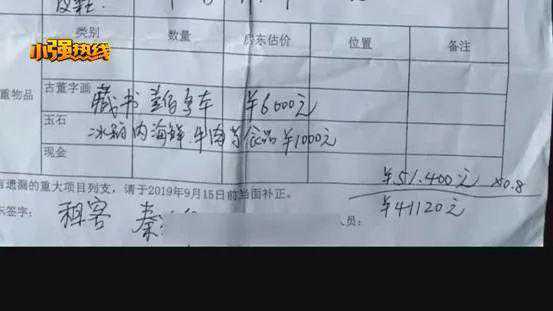 小强热线
类别 数量 房东估价 位置 备注
重物品
古董字画
藏书 ¥6000元
玉石
冰箱内海鲜.牛肉等食品¥1000元
现金
有遗漏的重大项目列支,请于2019年9月15日前当面补正。
¥51.400元 ×0.8
¥41120元
东签字: 租客 秦 员: